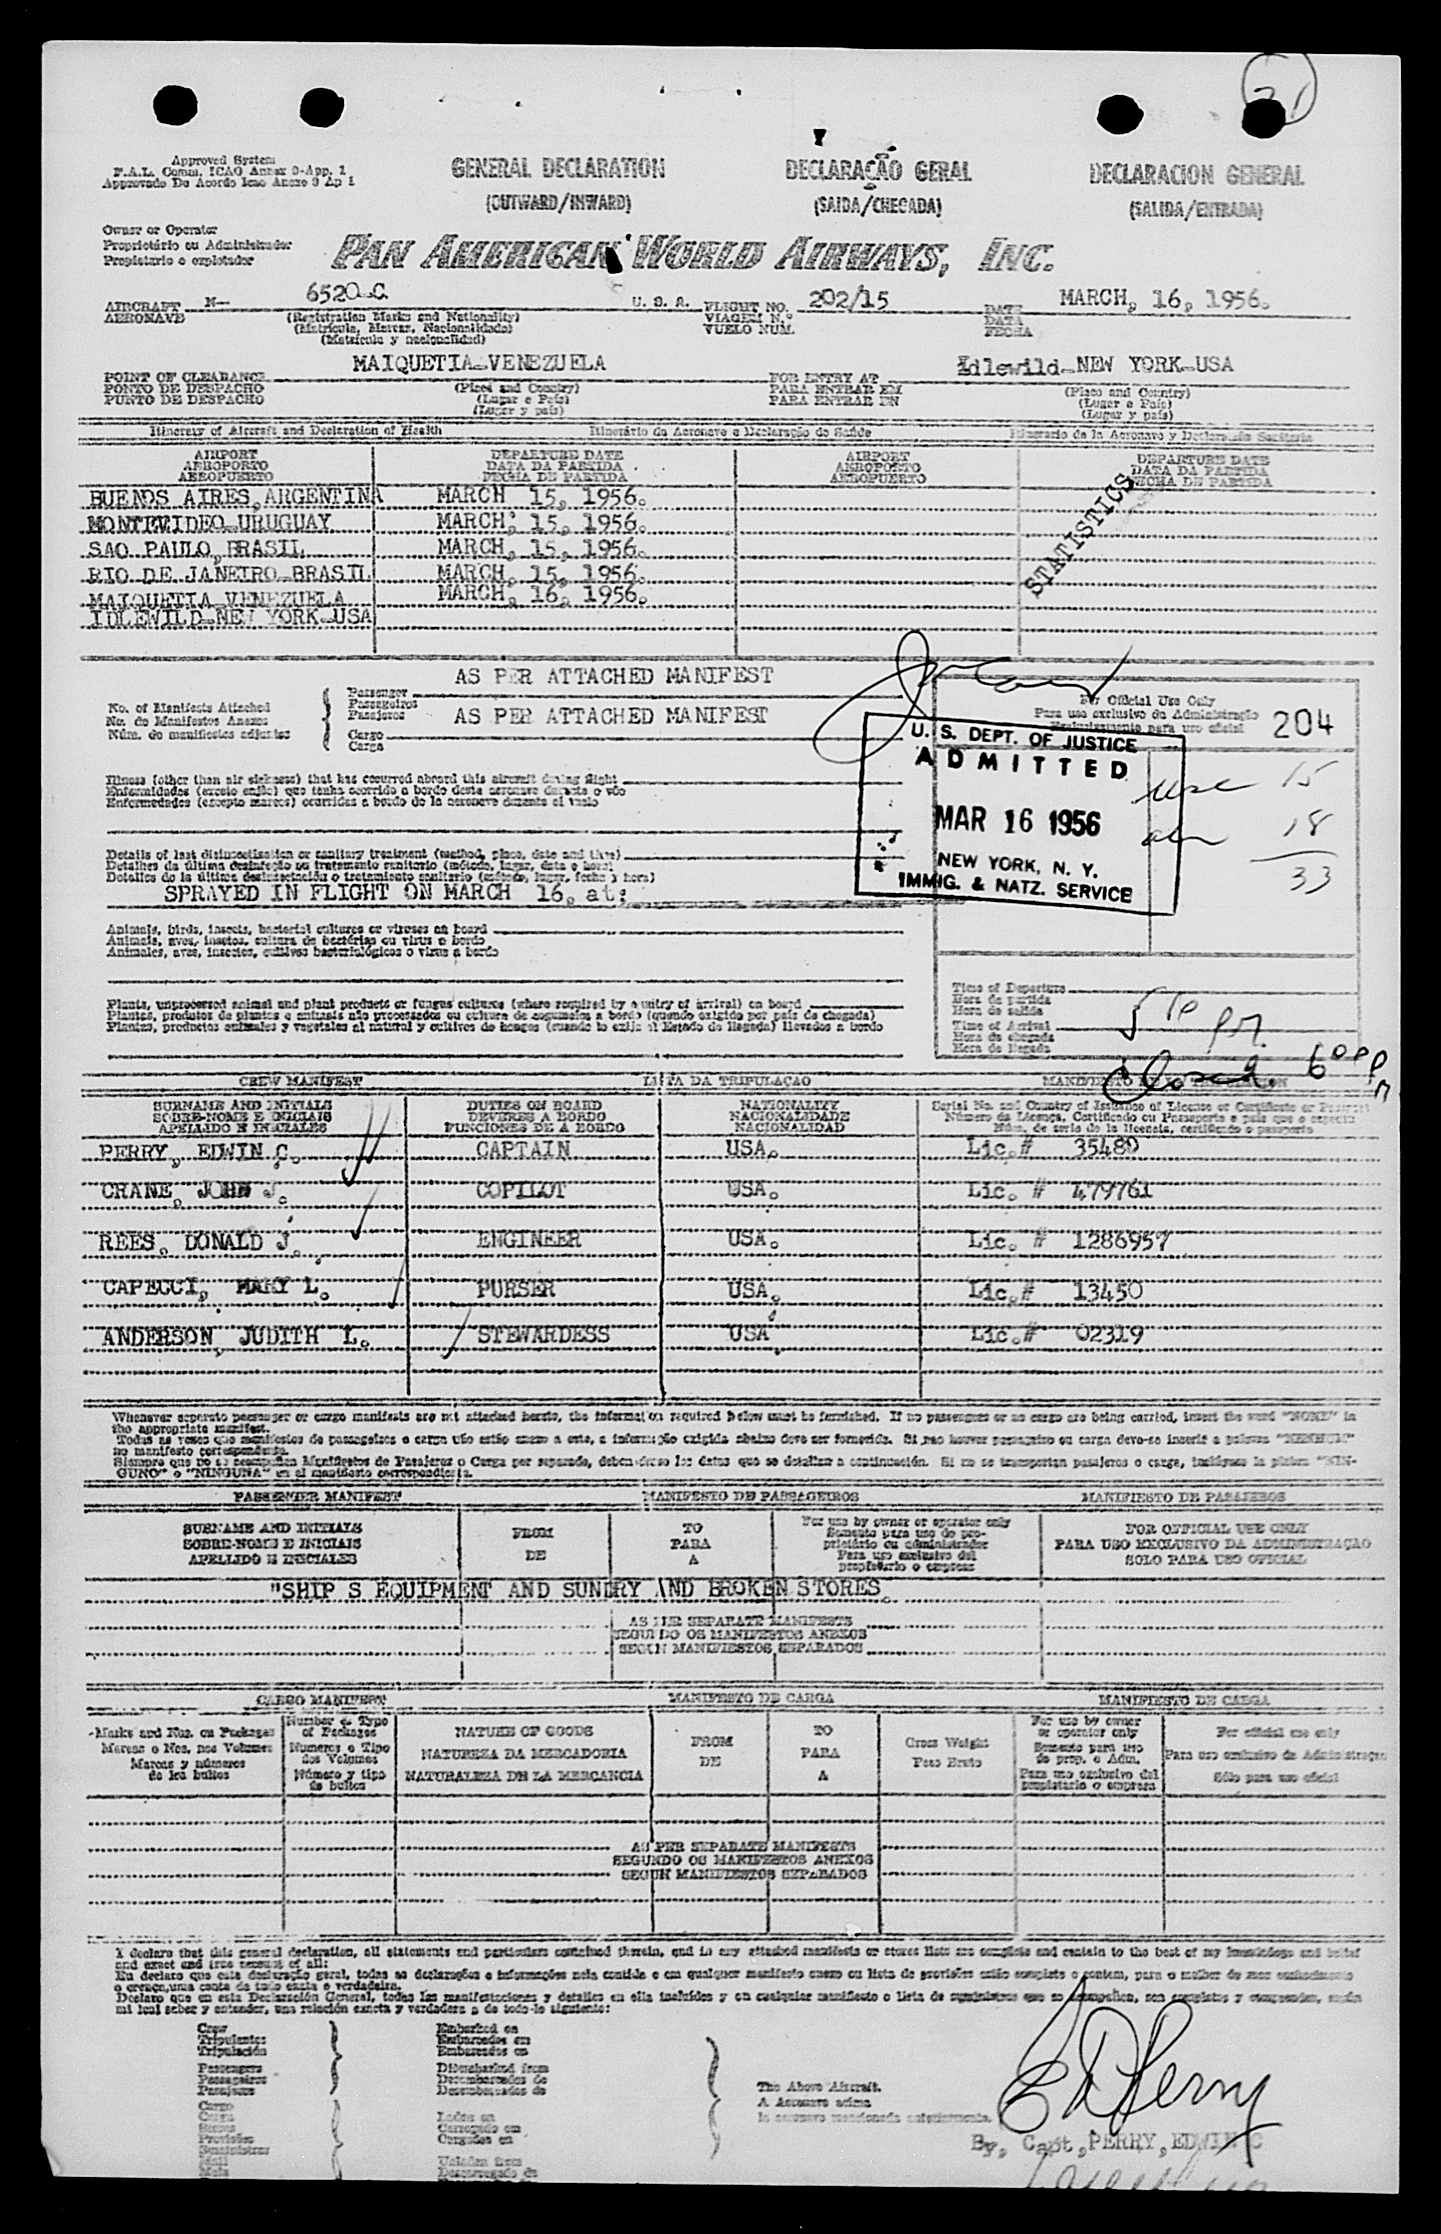 21
Approved System
F.A.L. Comm. ICAO Annex 9-App. 1
Approvado De Acordo Icao Anexo 9 Ap 1
GENERAL DECLARATION
(OUTWARD/INWARD)
DECLARAÇÃO GERAL
(SAIDA/CHEGADA)
DECLARACION GENERAL
(SALIDA/ENTRADA)
Owner or Operator
Proprietário ou Administrador
Propietario o explotador
PAN AMERICAN WORLD AIRWAYS, INC.
AIRCRAFT N- 6520-C U. S. A. FLIGHT NO. 202/15 DATE MARCH, 16, 1956.
AERONAVE (Registration Marks and Nationality) VIAGEM N.º DATA
(Matricula, Marcas, Nacionalidade) VUELO NUM. FECHA
(Matricula y nacionalidad)
MAIQUETIA-VENEZUELA Idlewild-NEW YORK-USA
POINT OF CLEARANCE (Place and Country) FOR ENTRY AT (Place and Country)
PONTO DE DESPACHO (Lugar e País) PARA ENTRAR EM (Lugar e País)
PUNTO DE DESPACHO (Lugar y país) PARA ENTRAR EN (Lugar y país)
Itinerary of Aircraft and Declaration of Health Itinerário da Aeronave e Declaração de Saúde Itinerario de la Aeronave y Declaración Sanitaria
AIRPORT DEPARTURE DATE AIRPORT DEPARTURE DATE
AEROPORTO DATA DA PARTIDA AEROPORTO DATA DA PARTIDA
AEROPUERTO FECHA DE PARTIDA AEROPUERTO FECHA DE PARTIDA
BUENOS AIRES,ARGENTINA MARCH 15, 1956.
MONTEVIDEO-URUGUAY MARCH, 15, 1956.
SAO PAULO,BRASIL MARCH, 15, 1956.
RIO DE JANEIRO-BRASIL MARCH, 15, 1956.
MAIQUETIA VENEZUELA MARCH, 16, 1956.
IDLEWILD-NEW YORK-USA
STATISTICS
AS PER ATTACHED MANIFEST
No. of Manifests Attached Passenger
No. de Manifestos Anexos Passageiros
Núm. de manifiestos adjuntos Pasajeros
AS PER ATTACHED MANIFEST
Cargo
Carga
For Official Use Only
Para uso exclusivo da Administração
Exclusivamente para uso oficial
204
U. S. DEPT. OF JUSTICE
ADMITTED
MAR 16 1956
NEW YORK, N. Y.
IMMIG. & NATZ. SERVICE
usc 15
aln 18
33
Illness (other than air sickness) that has occurred aboard this aircraft during flight
Enfermidades (exceto enjôo) que tenha ocorrido a bordo desta aeronave durante o vôo
Enfermedades (excepto mareos) ocurridas a bordo de la aeronave durante el vuelo
Details of last disinsectization or sanitary treatment (method, place, date and time)
Detalhes da última desinfeção ou tratamento sanitario (método, lugar, data e hora)
Detalles de la última desinsectación o tratamiento sanitario (método, lugar, fecha y hora)
SPRAYED IN FLIGHT ON MARCH 16, at:
Animals, birds, insects, bacterial cultures or viruses on board
Animais, aves, insetos, cultura de bactérias ou virus a bordo
Animales, aves, insectos, cultivos bacteriológicos o virus a bordo
Plants, unprocessed animal and plant products or fungus cultures (where required by country of arrival) on board
Plantas, produtos de plantas e animais não processados ou cultura de cogumelos a bordo (quando exigido por país de chegada)
Plantas, productos animales y vegetales al natural y cultivos de hongos (cuando lo exija el Estado de llegada) llevados a bordo
Time of Departure
Hora de partida
Hora de salida
Time of Arrival
Hora de chegada
Hora de llegada
5 10 PM
Closed. 6 00 PM
CREW MANIFEST LISTA DA TRIPULAÇÃO
SURNAME AND INITIALS DUTIES ON BOARD NATIONALITY Serial No. and Country of Issuance of License or Certificate or Passport
SOBRE-NOME E INICIAIS DEVERES A BORDO NACIONALIDADE Número da Licença, Certificado ou Passaporte e país que o expediu
APELLIDO E INICIALES FUNCIONES DE A BORDO NACIONALIDAD Núm. de serie de la licencia, certificado o pasaporte
PERRY, EDWIN C. CAPTAIN USA. Lic.# 35480
CRANE, JOHN J. COPILOT USA. Lic. # 479761
REES, DONALD J. ENGINEER USA. Lic. # 1286957
CAPECCI, MARY L. PURSER USA. Lic.# 13450
ANDERSON, JUDITH L. STEWARDESS USA Lic.# 02319
Whenever separate passenger or cargo manifests are not attached hereto, the information required below must be furnished. If no passengers or no cargo are being carried, insert the word "NONE" in
the appropriate manifest.
Todas as vezes que manifestos de passageiros e carga não estão anexo a este, a informação exigida abaixo deve ser fornecida. Si nao houver passageiro ou carga deve-se inserir a palavra "NENHUM"
no manifesto correspondente.
Siempre que no se acompañen Manifiestos de Pasajeros o Carga por separado, deben darse los datos que se detallan a continuación. Si no se transportan pasajeros o carga, inclúyase la palabra "NIN-
GUNO" o "NINGUNA" en el manifiesto correspondiente.
PASSENGER MANIFEST MANIFESTO DE PASSAGEIROS MANIFIESTO DE PASAJEROS
SURNAME AND INITIALS FROM TO For use by owner or operator only FOR OFFICIAL USE ONLY
SOBRE-NOME E INICIAIS DE PARA Somente para uso de pro- PARA USO EXCLUSIVO DA ADMINISTRAÇÃO
APELLIDO E INICIALES A prietário ou administrador SOLO PARA USO OFICIAL
Para uso exclusivo del
propietario o empresa
"SHIP S EQUIPMENT AND SUNDRY AND BROKEN STORES.
AS PER SEPARATE MANIFESTS
SEGUNDO OS MANIFESTOS ANEXOS
SEGUN MANIFIESTOS SEPARADOS
CARGO MANIFEST MANIFESTO DE CARGA MANIFIESTO DE CARGA
Marks and Nos. on Packages Number & Type of Packages NATURE OF GOODS FROM TO Gross Weight For use by owner or operator only For official use only
Marcas e Nos. nos Volumes Numeros e Tipo dos Volumes NATUREZA DA MERCADORIA DE PARA Peso Bruto Somente para uso do prop. o Adm. Para uso exclusivo da Administraçao
Marcas y números de los bultos Número y tipo de bultos NATURALEZA DE LA MERCANCIA A Para uso exclusivo del propietario o empresa Sólo para uso oficial
AS PER SEPARATE MANIFESTS
SEGUNDO OS MANIFESTOS ANEXOS
SEGUN MANIFIESTOS SEPARADOS
I declare that this general declaration, all statements and particulars contained therein, and in any attached manifests or stores lists are complete and contain to the best of my knowledge and belief
and exact and true account of all:
Eu declaro que esta declaração geral, todas as declarações e informações nela contida e em qualquer manifesto anexo ou lista de provisões estão completo e contem, para o melhor de meu conhecimento
e crença,uma conta de todo exata e verdadeira.
Declaro que en esta Declaración General, todas las manifestaciones y detalles en ella incluídos y en cualquier manifiesto o lista de suministros que se acompañen, son completos y comprenden, según
mi leal saber y entender, una relación exacta y verdadera de todo lo siguiente:
Crew Embarked on
Tripulantes Embarcados em
Tripulación Embarcados en
Passengers Disembarked from
Passageiros Desembarcados de
Pasajeros Desembarcados de
Cargo
Carga Laden on
Carregado em
Provisões Cargados en
Suministros
Mail Unladen from
Mala Descarregado de
The Above Aircraft.
A Aeronave acima
la aeronave mencionada anteriormente.
E C Perry
By, Capt,PERRY,EDWIN C